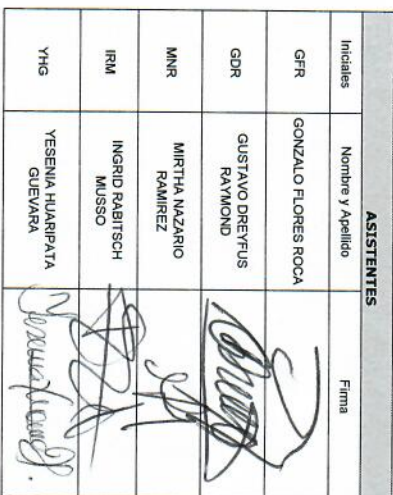 ASISTENTES
Iniciales Nombre y Apellido Firma
GFR GONZALO FLORES ROCA
GDR GUSTAVO DREYFUS
RAYMOND
MNR MIRTHA NAZARIO
RAMIREZ
IRM INGRID RABITSCH
MUSSO
YHG YESENIA HUARIPATA
GUEVARA